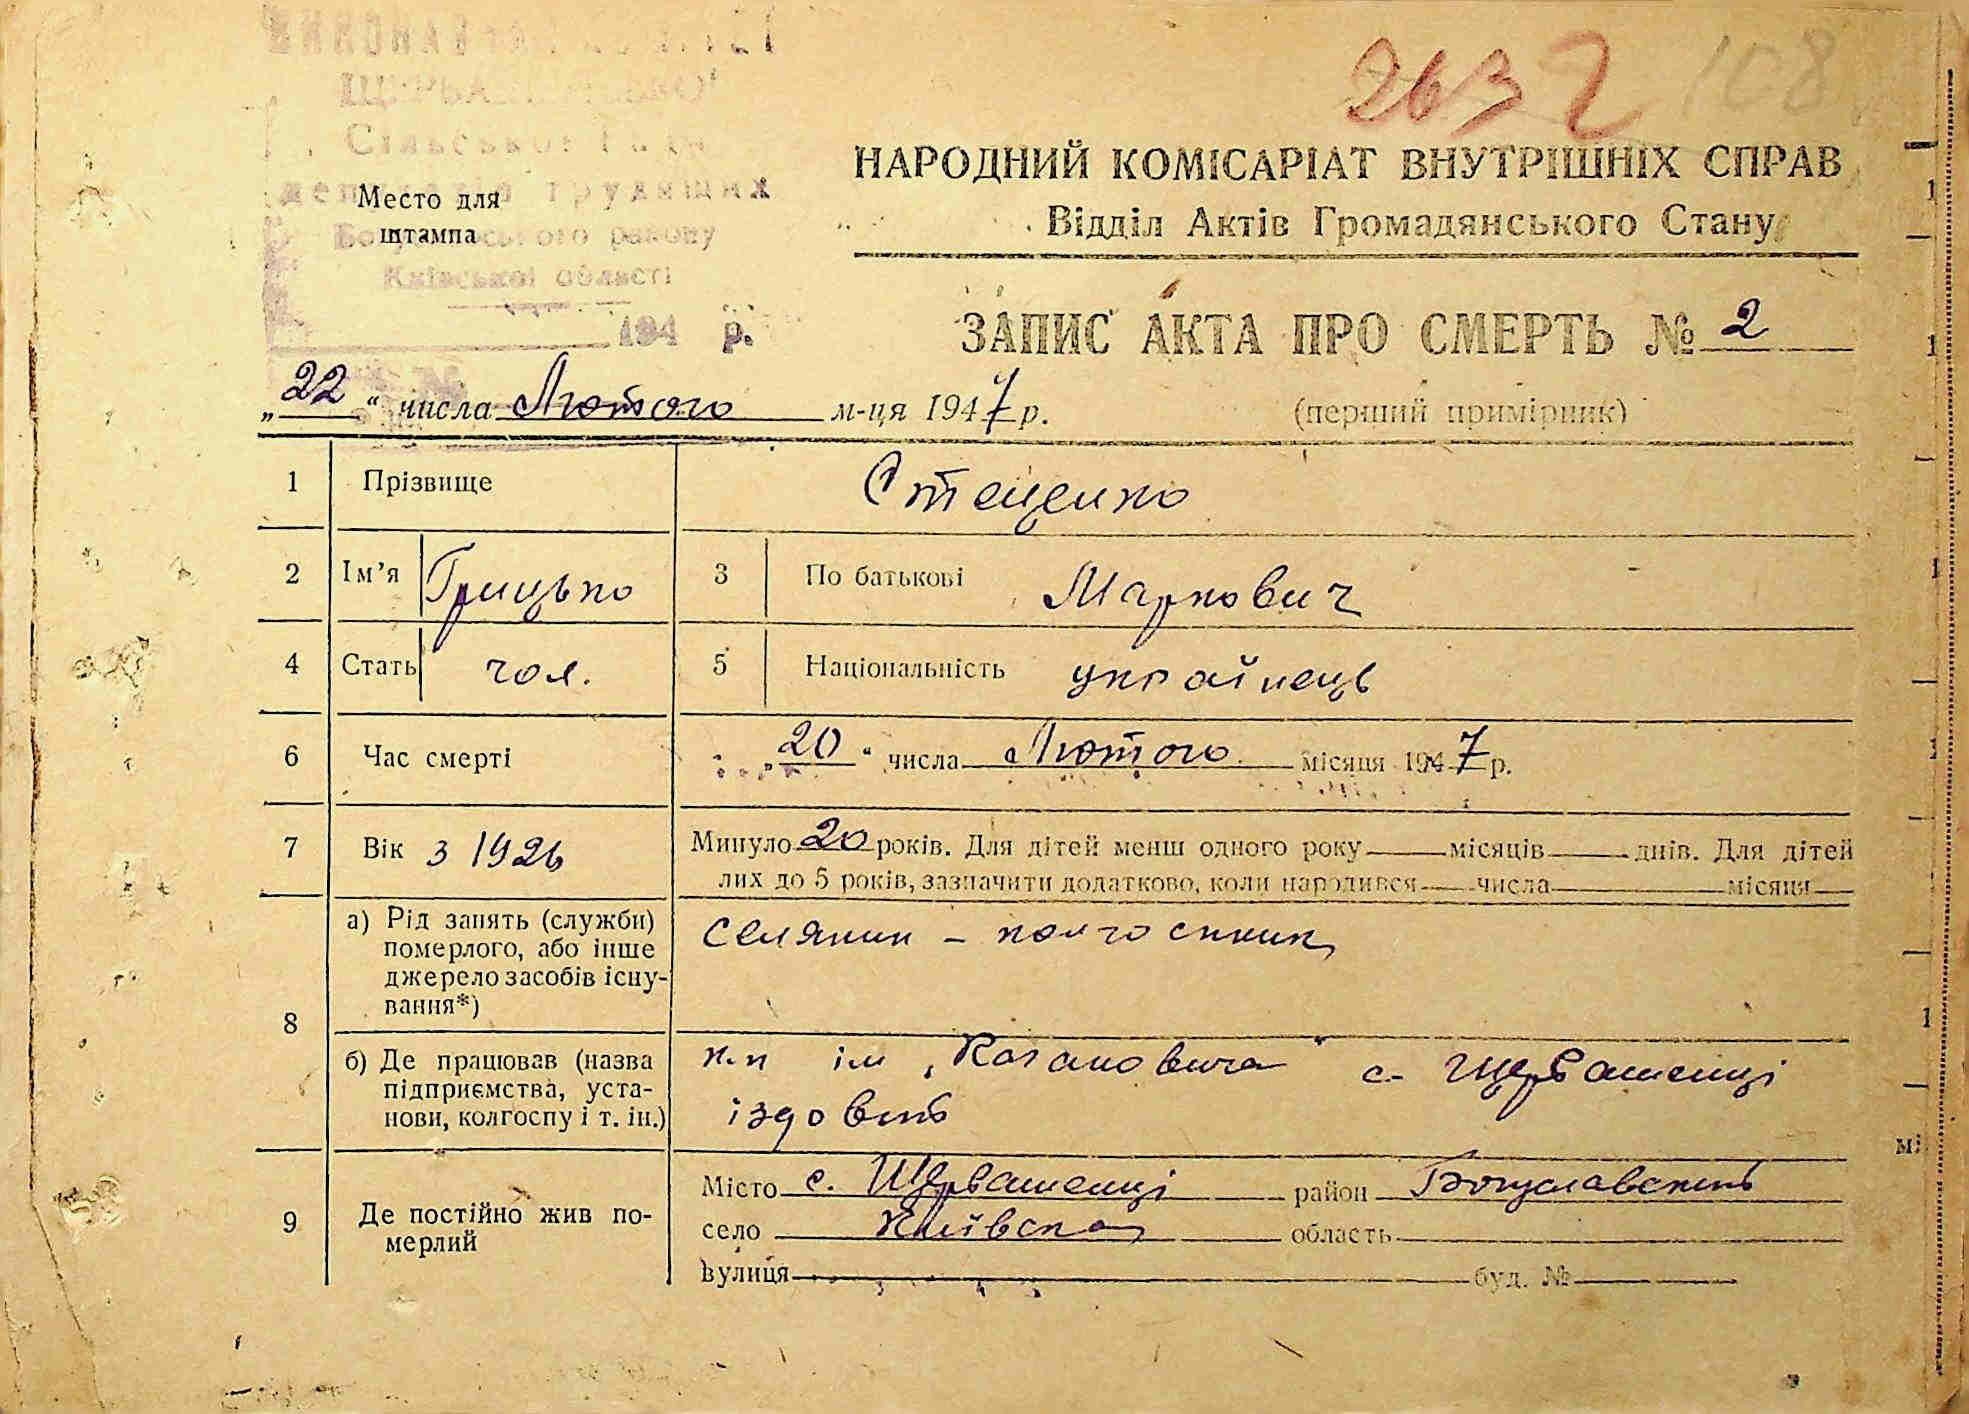 2632 108
Сільської Ради
депутатів трудящих
Место для
штампа
Богуславського району
Київської області
194 р.
НАРОДНИЙ КОМІСАРІАТ ВНУТРІШНІХ СПРАВ
Відділ Актів Громадянського Стану
ЗАПИС АКТА ПРО СМЕРТЬ № 2
„22“ числа Лютого м-ця 1947 р.
(перший примірник)
1 Прізвище Стеценко
2 Ім’я Грицько 3 По батькові Маркович
4 Стать чол. 5 Національність українець
6 Час смерті „20“ числа Лютого місяця 1947 р.
7 Вік з 1926 Минуло 20 років. Для дітей менш одного року місяців днів. Для дітей
лих до 5 років, зазначити додатково, коли народився числа місяця
8 а) Рід занять (служби)
померлого, або інше
джерело засобів існу-
вання*)
селянин - колгоспник
б) Де працював (назва
підприємства, уста-
нови, колгоспу і т. ін.)
к-п ім „Кагановича“ с. Щербашенці
іздовий
9 Де постійно жив по-
мерлий
Місто с. Щербашенці район Богуславський
село Київска область
вулиця буд. №